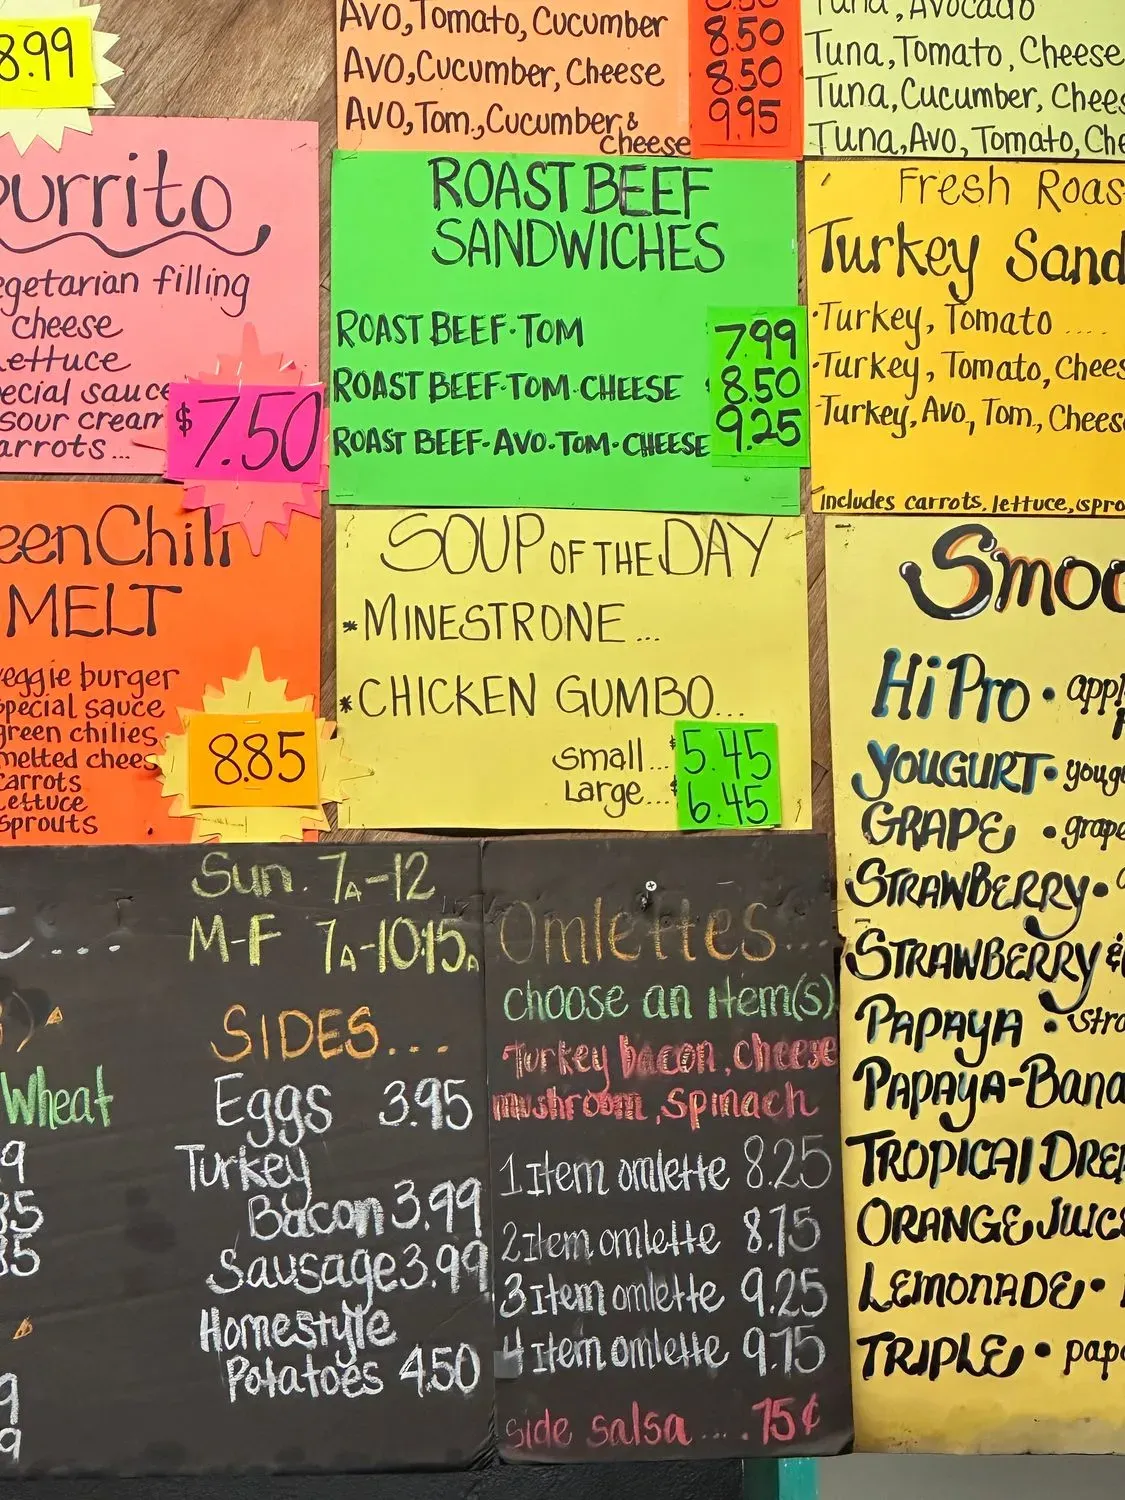 8.99
Avo, Tomato, Cucumber 8.50
Avo, Cucumber, Cheese 8.50
Avo, Tom., Cucumber & cheese 9.95
Tuna, Avocado
Tuna, Tomato, Cheese
Tuna, Cucumber, Chees
Tuna, Avo, Tomato, Che
urrito
egetarian filling
cheese
ettuce
pecial sauce
sour cream
arrots...
$7.50
ROAST BEEF
SANDWICHES
ROAST BEEF·TOM 7.99
ROAST BEEF·TOM·CHEESE 8.50
ROAST BEEF·AVO·TOM·CHEESE 9.25
Fresh Roas
Turkey Sand
·Turkey, Tomato ....
·Turkey, Tomato, Chees
·Turkey, Avo, Tom., Cheese
includes carrots, lettuce, spro
eenChili
MELT
veggie burger
special sauce
green chilies
melted chees
carrots
Lettuce
Sprouts
8.85
SOUP OF THE DAY
*MINESTRONE...
*CHICKEN GUMBO...
Small...$5.45
Large...$6.45
Smoo
Hi Pro · appl
YOUGURT · youg
GRAPE · grape
STRAWBERRY ·
STRAWBERRY &
PAPAYA · stra
PAPAYA-Bana
TROPICAL DREA
ORANGE JUICE
LEMONADE ·
TRIPLE · papa
Sun. 7A-12
M-F 7A-10:15A
Wheat
SIDES...
Eggs 3.95
Turkey
Bacon 3.99
Sausage 3.99
Homestyle
Potatoes 4.50
Omlettes...
choose an item(s)
Turkey bacon, cheese
mushroom, spinach
1 Item omlette 8.25
2 Item omlette 8.75
3 Item omlette 9.25
4 Item omlette 9.75
side salsa.... .75¢